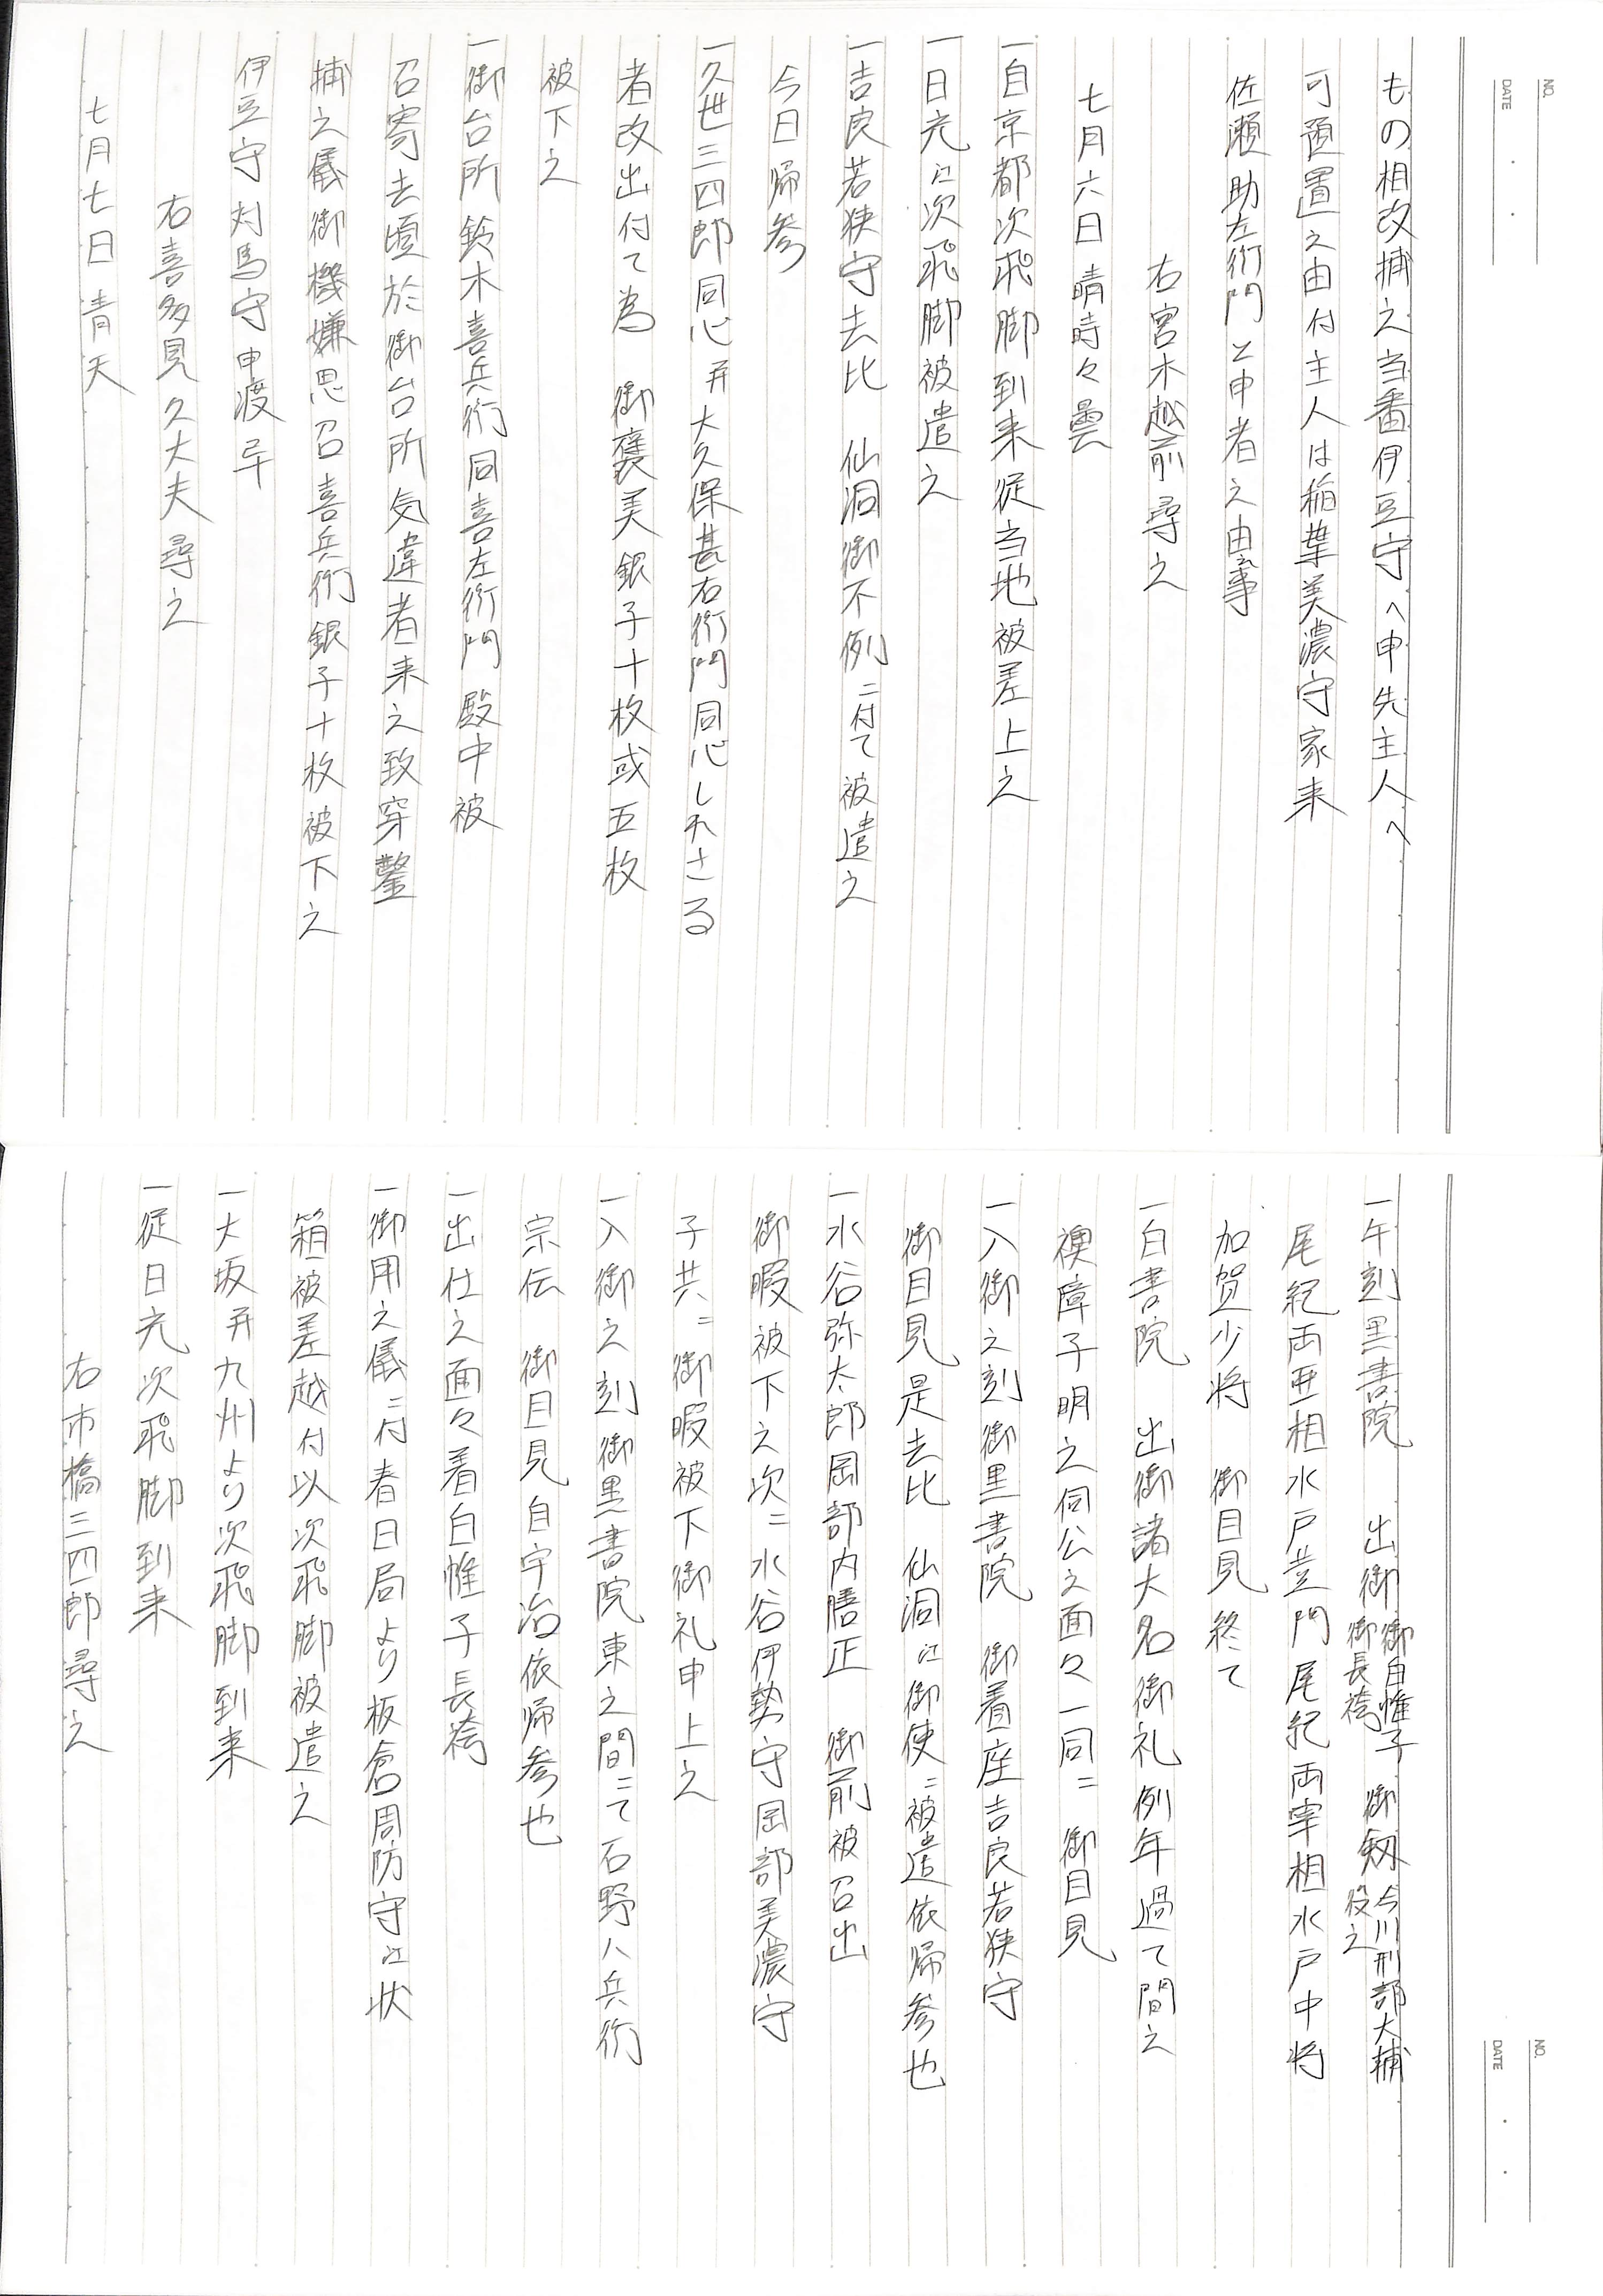 NO.
DATE
もの相改捕之当番伊豆守へ申先主人へ
可預置之由付主人は稲葉美濃守家来
佐瀬助左衛門と申者之由云事
右宮木越前尋之
七月六日晴時々曇
一自京都次飛脚到来従当地被差上之
一日光江次飛脚被遣之
一吉良若狭守去比　仙洞御不例ニ付て被遣之
今日帰参
一久世三四郎同心并大久保甚右衛門同心しれさる
者改出付て為　御褒美銀子十枚或五枚
被下之
一御台所鈴木喜兵衛同喜左衛門殿中被
召寄去頃於御台所気違者来之致穿鑿
捕之儀御機嫌思召喜兵衛銀子十枚被下之
伊豆守対馬守申渡畢
右喜多見久大夫尋之
七月七日青天
NO.
DATE
一午刻黒書院　出御 御白帷子 御長袴　御剱 今川刑部大輔 役之
尾紀両亜相水戸黄門尾紀両宰相水戸中将
加賀少将　御目見終て
一白書院　出御諸大名御礼例年過て間之
襖障子明之伺公之面々一同ニ　御目見
一入御之刻御黒書院　御着座吉良若狭守
御目見是去比　仙洞江御使ニ被遣依帰参也
一水谷弥太郎岡部内膳正　御前被召出
御暇被下之次ニ水谷伊勢守岡部美濃守
子共ニ御暇被下御礼申上之
一入御之刻御黒書院東之間ニて石野八兵衛
宗伝　御目見自宇治依帰参也
一出仕之面々着白帷子長袴
一御用之儀ニ付春日局より板倉周防守江状
箱被差越付以次飛脚被遣之
一大坂并九州より次飛脚到来
一従日光次飛脚到来
右市橋三四郎尋之